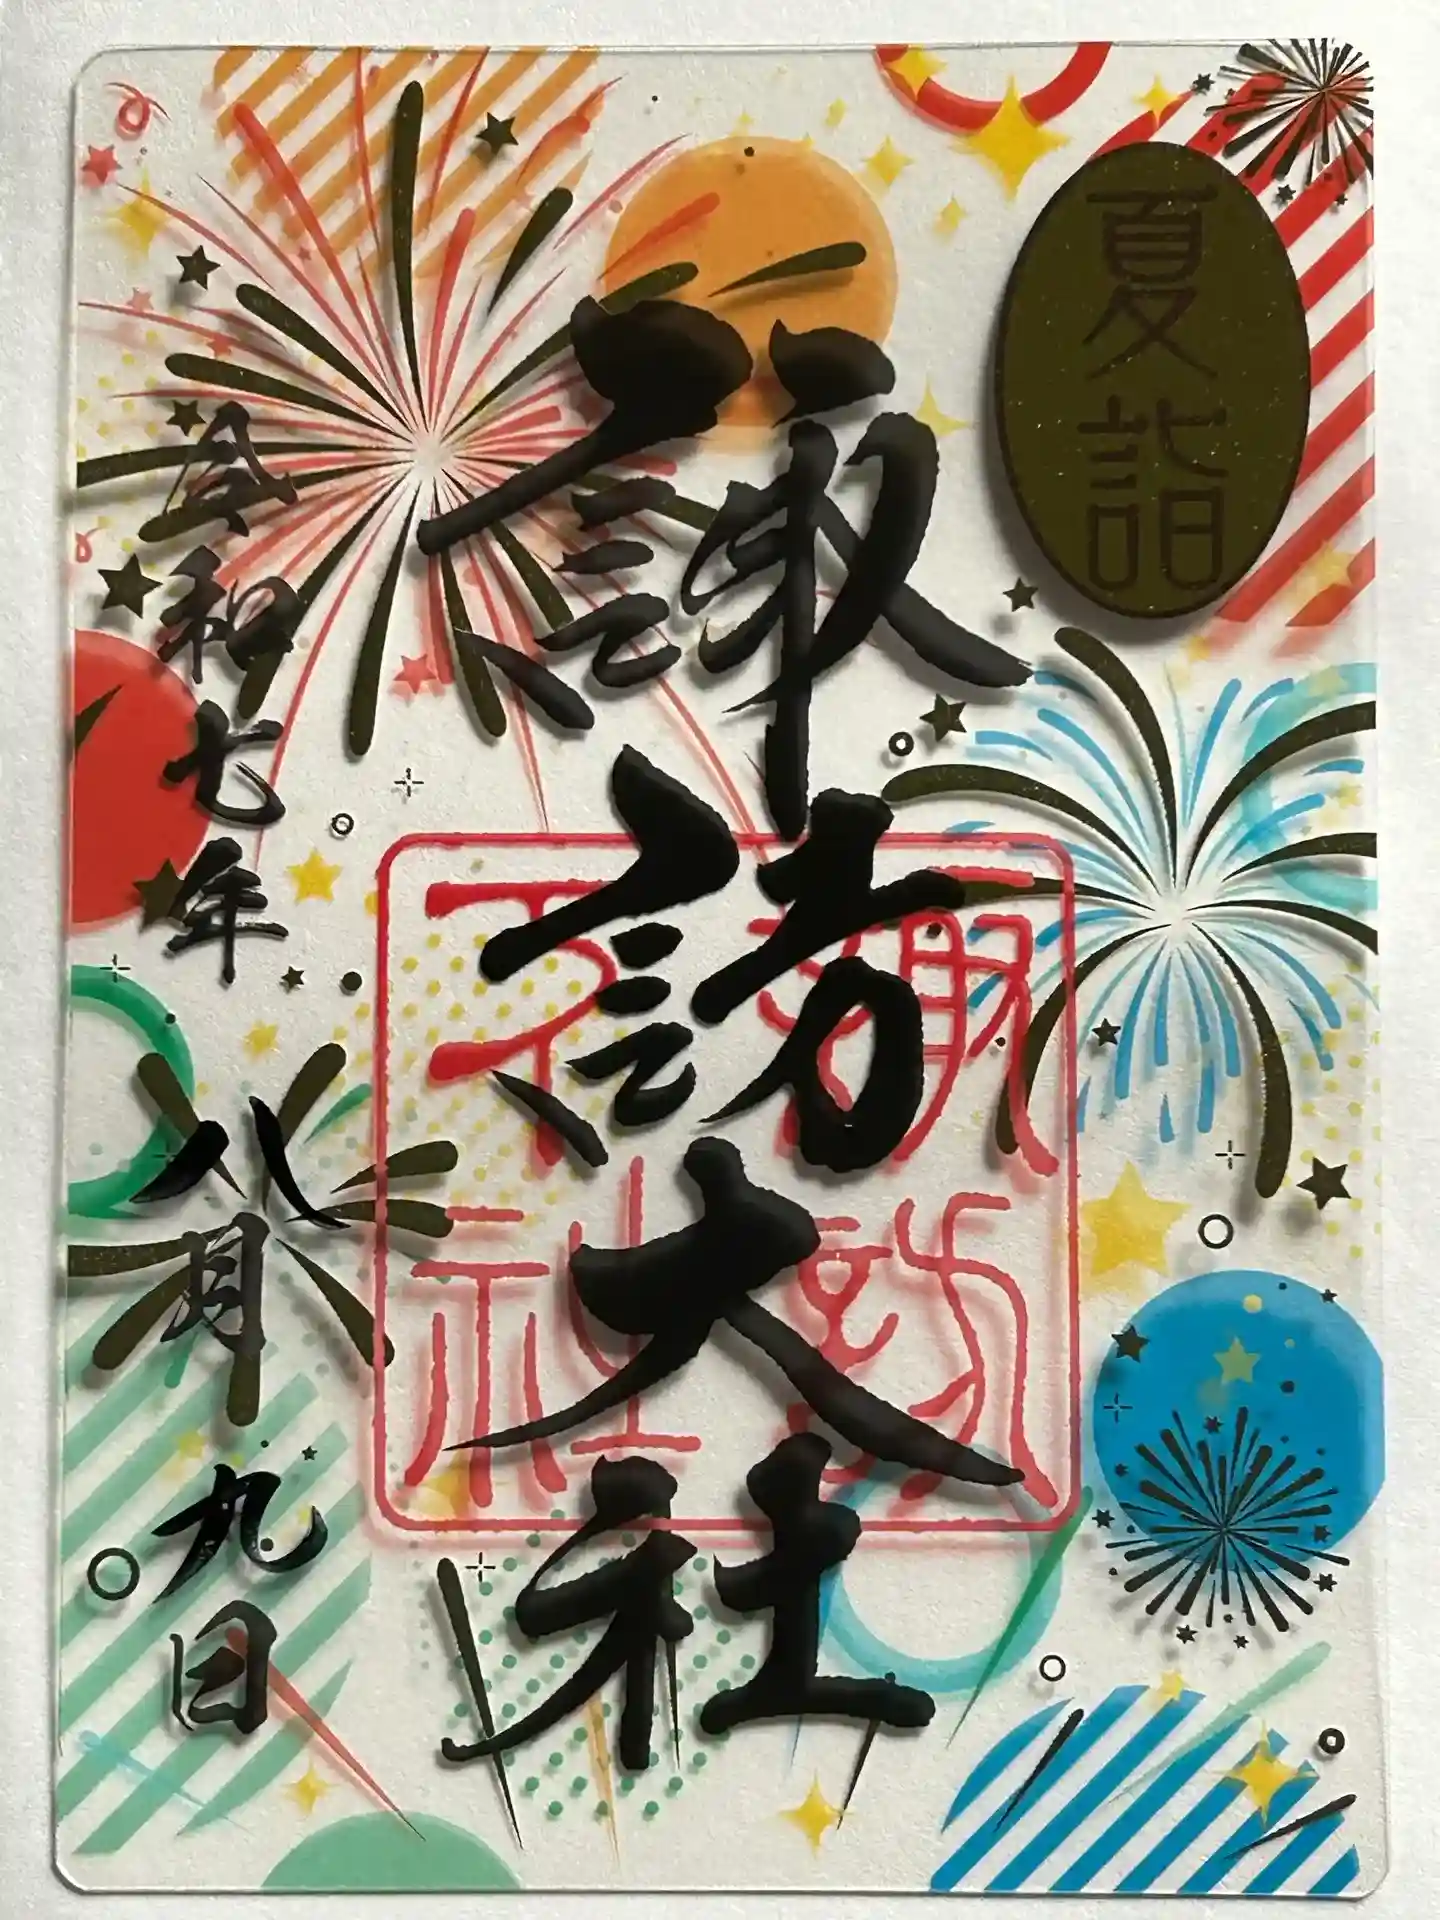 夏詣
諏訪大社
諏訪
社
令和七年八月九日